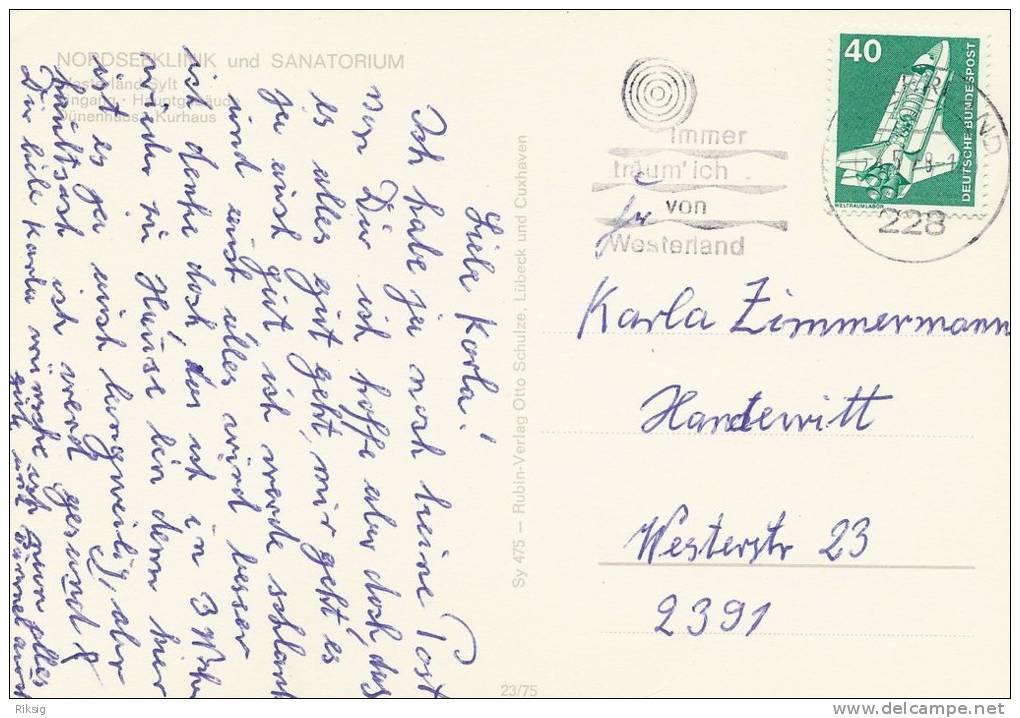 NORDSEEKLINIK und SANATORIUM
Westerland/Sylt
Eingang · Hauptgebäude
Dünenhaus · Kurhaus
Liebe Karla!
Ich habe ja noch keine Post
von Dir ich hoffe aber doch, das
es alles gut geht, mir geht es
ja einst gut ich werde schlank
und einst alles wird besser
ich denke doch, das ich in 3 Woche
wieder zu Hause bin denn hier
ist es ja auch langweilig, aber
hauptsach ich werd gesund
Dir liebe Karla wünsche ich nun alles
gute und
Sy 475 — Rubin-Verlag Otto Schulze, Lübeck und Cuxhaven
23/75
Immer
träum' ich
von
Westerland
40
DEUTSCHE BUNDESPOST
WELTRAUMLABOR
228
Fr
Karla Zimmermann
Handewitt
Westerstr 23
2391
Riksig
www.delcampe.net